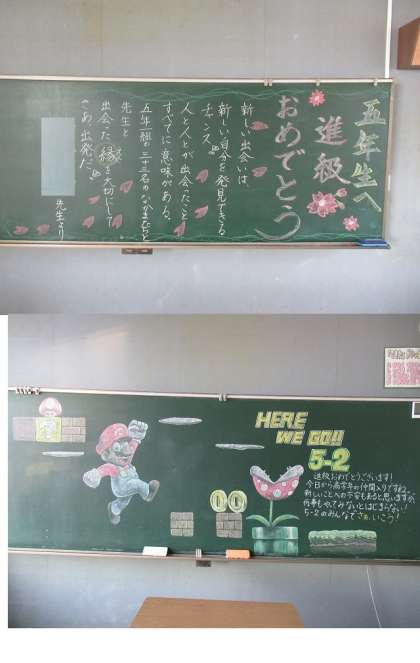 五年生へ
進級
おめでとう
新しい出会いは、
新しい自分を発見できる
チャンス。
人と人とが出会ったこと
すべてに意味がある。
五年一組の三十三名のなかまたちと
先生と
出会った縁を大切にして
さあ出発だ。
先生より
HERE
WE GO!!
5-2
進級おめでとうございます!
今日から高学年の仲間入りですね。
新しいことへの不安もあると思いますが、
何事もやってみないとはじまらない!
5-2のみんなでさぁ、いこう!